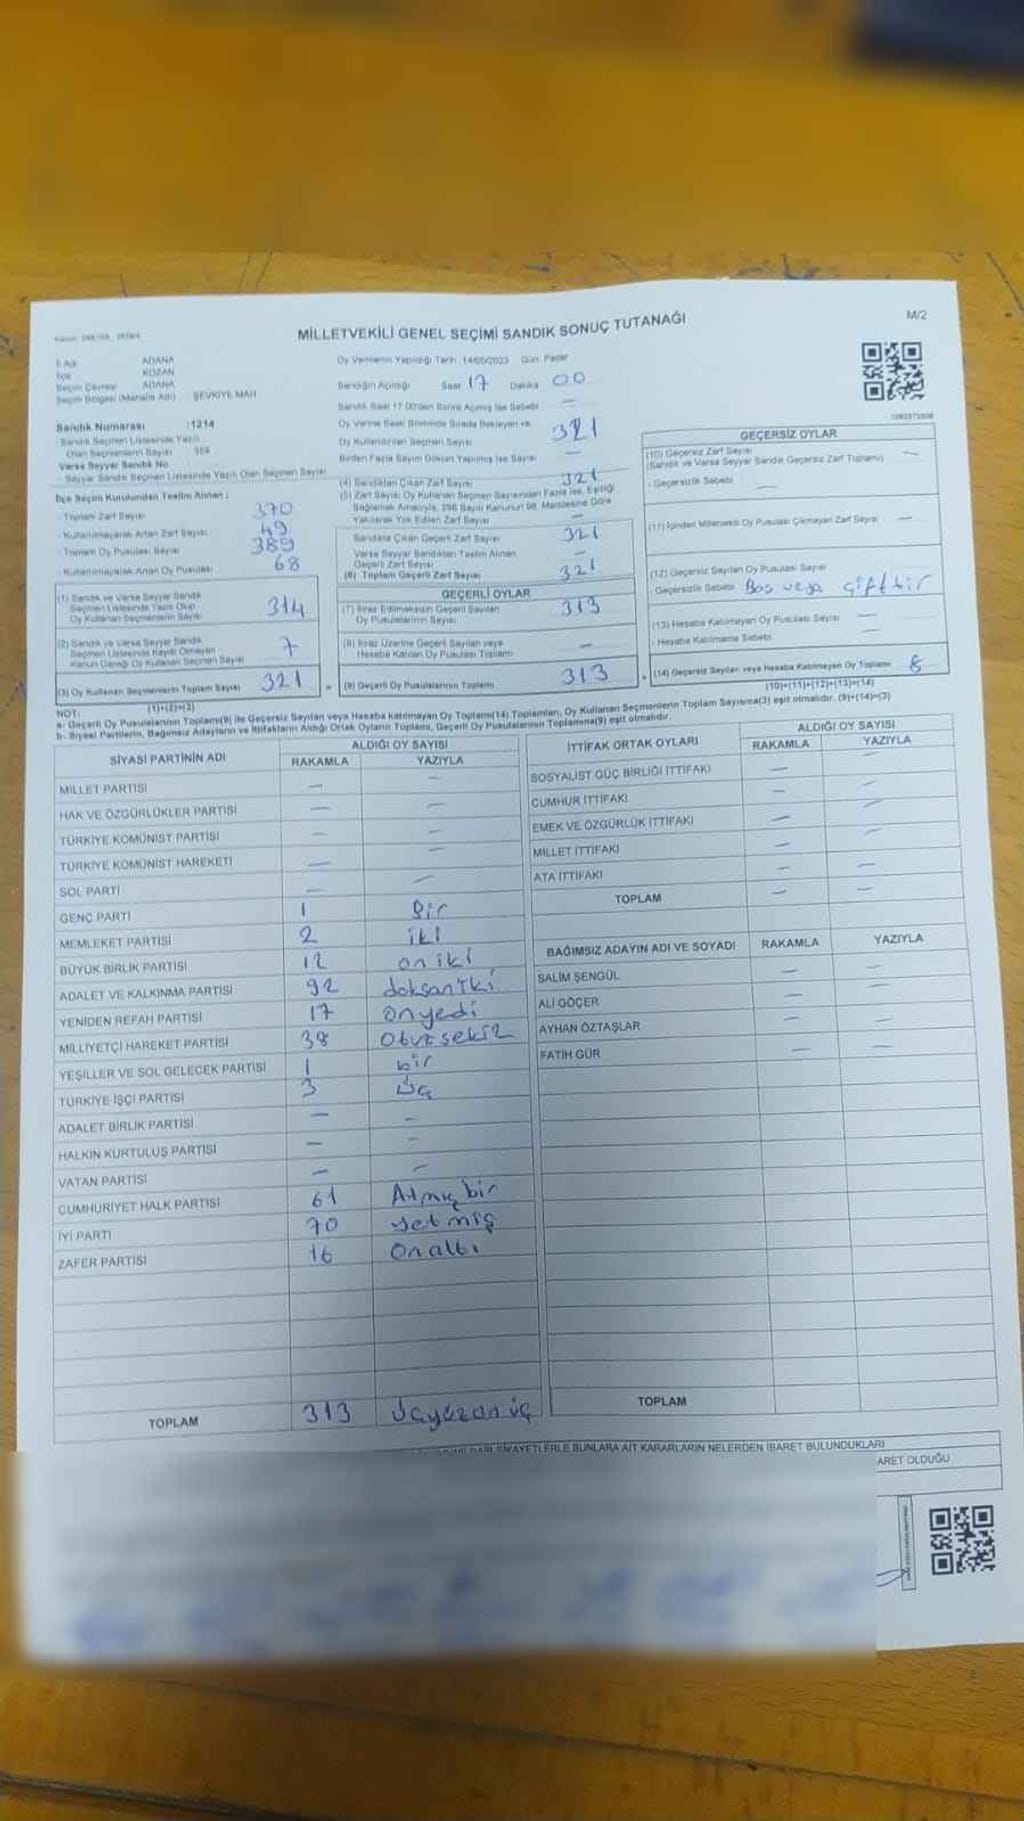 M/2
MİLLETVEKİLİ GENEL SEÇİMİ SANDIK SONUÇ TUTANAĞI
İl Adı ADANA
İlçe KOZAN
Seçim Çevresi ADANA
Seçim Bölgesi (Mahalle Adı) ŞEVKİYE MAH
Oy Vermenin Yapıldığı Tarih : 14/05/2023 Gün: Pazar
Sandığın Açıldığı Saat 17 Dakika 00
Sandık Saat 17.00'den Sonra Açılmış İse Sebebi —
Oy Verme Saati Bitiminde Sırada Bekleyen ve
Oy Kullandırılan Seçmen Sayısı 321
Birden Fazla Sayım Döküm Yapılmış İse Sayısı —
Sandık Numarası :1214
Sandık Seçmen Listesinde Yazılı
Olan Seçmenlerin Sayısı
Varsa Seyyar Sandık No
Seyyar Sandık Seçmen Listesinde Yazılı Olan Seçmen Sayısı
İlçe Seçim Kurulundan Teslim Alınan :
- Toplam Zarf Sayısı 370
- Kullanılmayarak Artan Zarf Sayısı 49
- Toplam Oy Pusulası Sayısı 389
- Kullanılmayarak Artan Oy Pusulası 68
(1) Sandık ve Varsa Seyyar Sandık
Seçmen Listesinde Yazılı Olup
Oy Kullanan Seçmenlerin Sayısı 314
(2) Sandık ve Varsa Seyyar Sandık
Seçmen Listesinde Kaydı Olmayan
Kanun Gereği Oy Kullanan Seçmen Sayısı 7
(3) Oy Kullanan Seçmenlerin Toplam Sayısı 321
(1)+(2)=(3)
(4) Sandıktan Çıkan Zarf Sayısı 321
(5) Zarf Sayısı, Oy Kullanan Seçmen Sayısından Fazla İse, Eşitliği
Sağlamak Amacıyla, 298 Sayılı Kanunun 98. Maddesine Göre
Yakılarak Yok Edilen Zarf Sayısı —
Sandıkta Çıkan Geçerli Zarf Sayısı 321
Varsa Seyyar Sandıktan Teslim Alınan
Geçerli Zarf Sayısı —
(6) Toplam Geçerli Zarf Sayısı 321
GEÇERLİ OYLAR
(7) İtiraz Edilmeksizin Geçerli Sayılan
Oy Pusulalarının Sayısı 313
(8) İtiraz Üzerine Geçerli Sayılan veya
Hesaba Katılan Oy Pusulası Toplamı —
= (9) Geçerli Oy Pusulalarının Toplamı 313
GEÇERSİZ OYLAR
(10) Geçersiz Zarf Sayısı —
(Sandık ve Varsa Seyyar Sandık Geçersiz Zarf Toplamı)
- Geçersizlik Sebebi —
(11) İçinden Milletvekili Oy Pusulası Çıkmayan Zarf Sayısı —
(12) Geçersiz Sayılan Oy Pusulası Sayısı
Geçersizlik Sebebi Boş veya
(13) Hesaba Katılmayan Oy Pusulası Sayısı —
- Hesaba Katılmama Sebebi —
+ (14) Geçersiz Sayılan veya Hesaba Katılmayan Oy Toplamı 8
(10)+(11)+(12)+(13)=(14)
NOT:
a- Geçerli Oy Pusulalarının Toplamı(9) ile Geçersiz Sayılan veya Hesaba katılmayan Oy Toplamı(14) Toplamları, Oy Kullanan Seçmenlerin Toplam Sayısına(3) eşit olmalıdır. (9)+(14)=(3)
b- Siyasi Partilerin, Bağımsız Adayların ve İttifakların Aldığı Ortak Oyların Toplamı, Geçerli Oy Pusulalarının Toplamına(9) eşit olmalıdır.
SİYASİ PARTİNİN ADI ALDIĞI OY SAYISI
RAKAMLA YAZIYLA
MİLLET PARTİSİ — —
HAK VE ÖZGÜRLÜKLER PARTİSİ — —
TÜRKİYE KOMÜNİST PARTİSİ — —
TÜRKİYE KOMÜNİST HAREKETİ — —
SOL PARTİ — —
GENÇ PARTİ 1 Bir
MEMLEKET PARTİSİ 2 iki
BÜYÜK BİRLİK PARTİSİ 12 on iki
ADALET VE KALKINMA PARTİSİ 92 doksaniki
YENİDEN REFAH PARTİSİ 17 onyedi
MİLLİYETÇİ HAREKET PARTİSİ 38 Otuzsekiz
YEŞİLLER VE SOL GELECEK PARTİSİ 1 bir
TÜRKİYE İŞÇİ PARTİSİ 3 Üç
ADALET BİRLİK PARTİSİ — —
HALKIN KURTULUŞ PARTİSİ — —
VATAN PARTİSİ — —
CUMHURİYET HALK PARTİSİ 61 Atmış bir
İYİ PARTİ 70 yetmiş
ZAFER PARTİSİ 16 On altı
TOPLAM 313 üçyüzonüç
İTTİFAK ORTAK OYLARI ALDIĞI OY SAYISI
RAKAMLA YAZIYLA
SOSYALİST GÜÇ BİRLİĞİ İTTİFAKI — —
CUMHUR İTTİFAKI — —
EMEK VE ÖZGÜRLÜK İTTİFAKI — —
MİLLET İTTİFAKI — —
ATA İTTİFAKI — —
TOPLAM — —
BAĞIMSIZ ADAYIN ADI VE SOYADI RAKAMLA YAZIYLA
SALİM ŞENGÜL — —
ALİ GÖÇER — —
AYHAN ÖZTAŞLAR — —
FATİH GÜR — —
TOPLAM
ŞİKAYETLERLE BUNLARA AİT KARARLARIN NELERDEN İBARET BULUNDUKLARI
ARET OLDUĞU